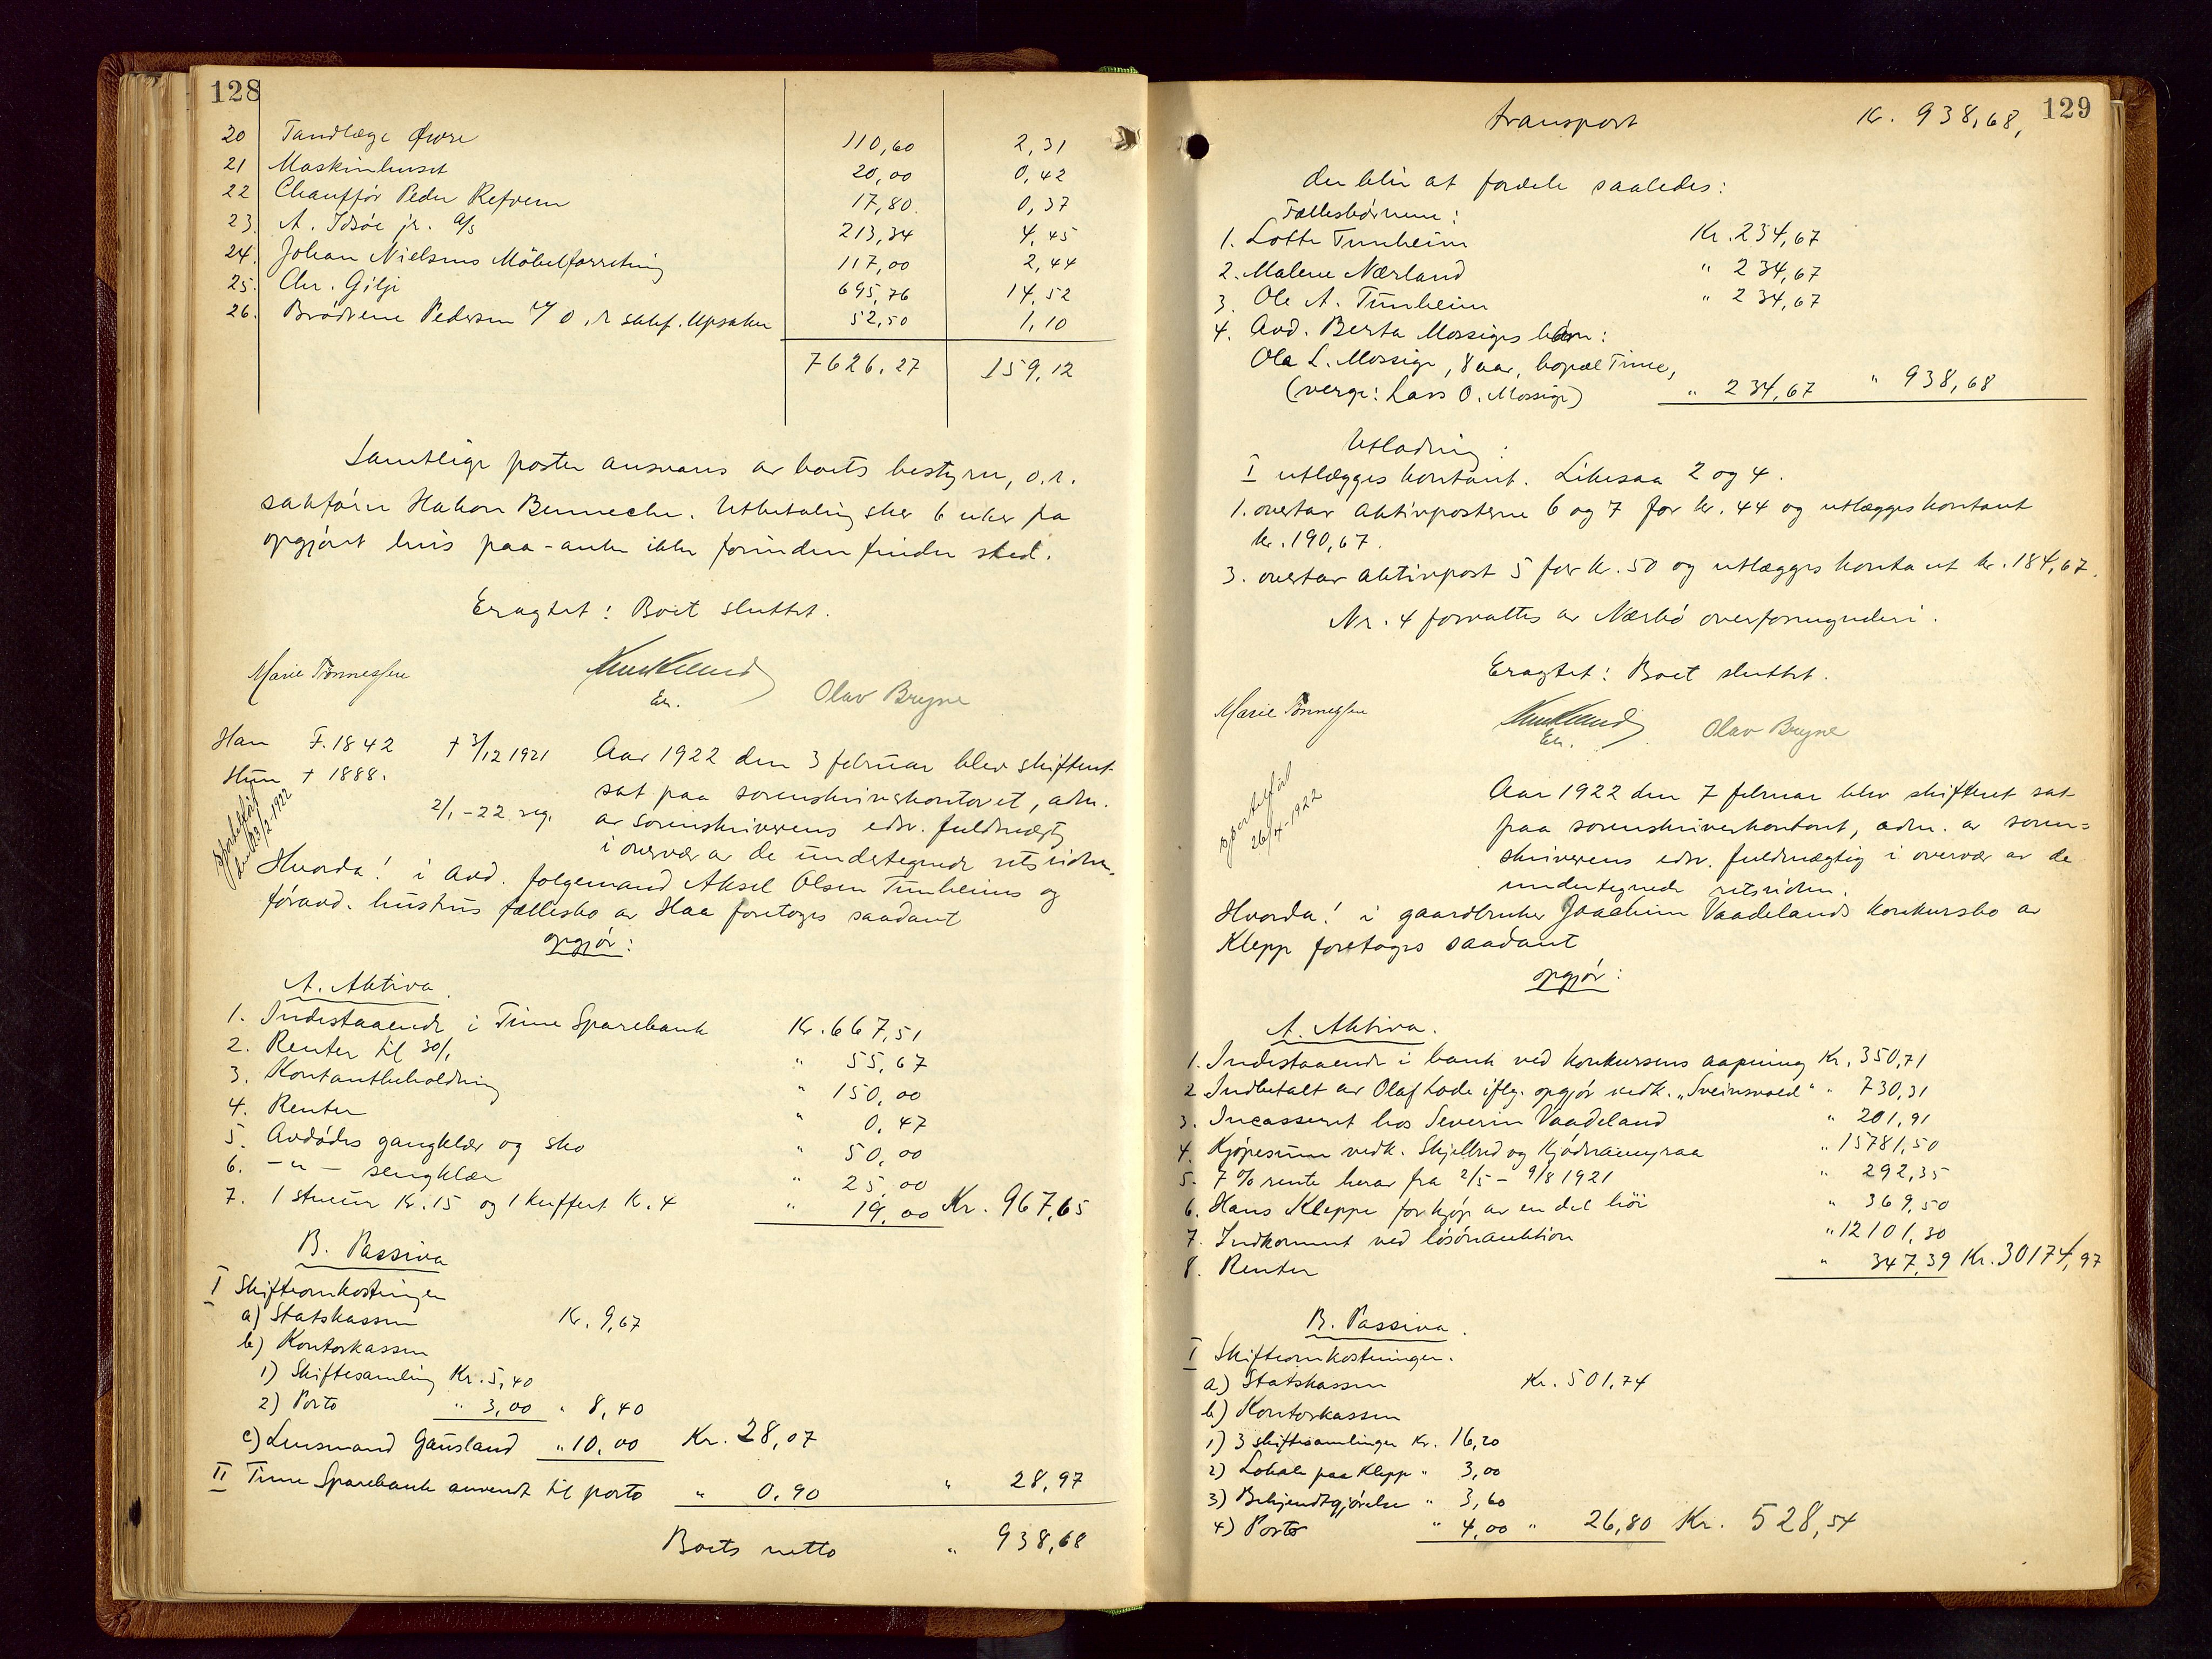 128
20 Tandlæge Øvre 110,60 2,31
21 Maskinhuset 20,00 0,42
22 Chauffør Peder Refvem 17,80 0,37
23. A. Idsøe jr. A/S 213,34 4,45
24. Johan Nielsens Møbelforretning 117,00 2,44
25. Chr. Gilje 695,76 14,52
26. Brødrene Pedersen v/ o.r. sakf. Upsaker 52,50 1,10
7626,27 159,12
Samtlige poster ansvares av boets bestyrer, o.r.
sakfører Hakon Benneche. Utbetaling sker 6 uker fra
opgjøret hvis paa-anke ikke forinden finder sted.
Eragtet: Boet sluttet.
Marie Tønnessen
En.
Olav Bryne
Han F. 1842 † 3/12 1921
Hun † 1888.
2/1 - 22 reg.
sportelført
den 23/2 1922
Aar 1922 den 3 februar blev skifteret
sat paa sorenskriverkontoret, adm.
av sorenskriverens edsv. fuldmægtig
i overvær av de undertegnede retsvidner.
Hvorda! i avd. følgemand Aksel Olsen Tunheims og
foravd. hustrus fællesbo av Haa foretoges saadant
opgjør:
A. Aktiva.
1. Indestaaende i Time Sparebank Kr. 667,51
2. Renter til 30/1 " 55,67
3. Kontantbeholdning " 150,00
4. Renter " 0,47
5. Avdødes gangklær og sko " 50,00
6. - " - sengklær " 25,00
7. 1 stueur Kr. 15 og 1 kuffert Kr. 4 " 19,00 Kr. 967,65
B. Passiva
I Skifteomkostninger
a) Statskassen Kr. 9,67
b) Kontorkassen
1) Skiftesamling Kr. 5,40
2) Porto " 3,00 " 8,40
c) Lensmand Gausland " 10,00 Kr. 28,07
II Time Sparebank anvendt til porto " 0,90 " 28,97
Boets netto " 938,68
129
transport Kr. 938,68,
der blir at fordele saaledes:
Fællesbørnene:
1. Lotte Tunheim Kr. 234,67
2. Malene Nærland " 234,67
3. Ole A. Tunheim " 234,67
4. Avd. Berta Mossiges barn:
Ola L. Mossige, 8 aar, bopæl Time,
(verge: Lars O. Mossige) " 234,67 " 938,68
Utlodning:
I utlægges kontant. Likesaa 2 og 4.
1. overtar aktivposterne 6 og 7 for kr. 44 og utlægges kontant
kr. 190,67.
3. overtar aktivpost 5 for kr. 50 og utlægges kontant kr. 184,67.
Nr. 4 forvaltes av Nærbø overformynderi.
Eragtet: Boet sluttet.
Marie Tønnessen
En.
Olav Bryne
sportelført
26/4-1922
Aar 1922 den 7 februar blev skifteret sat
paa sorenskriverkontoret, adm. av soren=
skriverens edsv. fuldmægtig i overvær av de
undertegnede retsvidner.
Hvorda! i gaardbruker Joachim Vaadelands konkursbo av
Klepp foretoges saadant
opgjør:
A. Aktiva.
1. Indestaaende i bank ved konkursens aapning Kr. 350,71
2 Indbetalt av Olaf Lode iflg. opgjør vedk. "Sveinsvold" " 730,31
3. Incasseret hos Severin Vaadeland " 201,91
4. Kjøpesum vedk. Skjelbred og Kjødnamyraa " 15781,50
5. 7 % rente herav fra 2/5 - 9/8 1921 " 292,35
6. Hans Kleppe for kjøp av en del høi " 369,50
7. Indkommet ved løsøreauktion " 12101,30
8. Renter " 347,39 Kr. 30174,97
B. Passiva.
I Skifteomkostninger.
a) Statskassen Kr. 501,74
b) Kontorkassen
1) 3 skiftesamlinger Kr. 16,20
2) Lokale paa Klepp " 3,00
3) Bekjendtgjørelse " 3,60
4) Porto " 4,00 " 26,80 Kr. 528,54